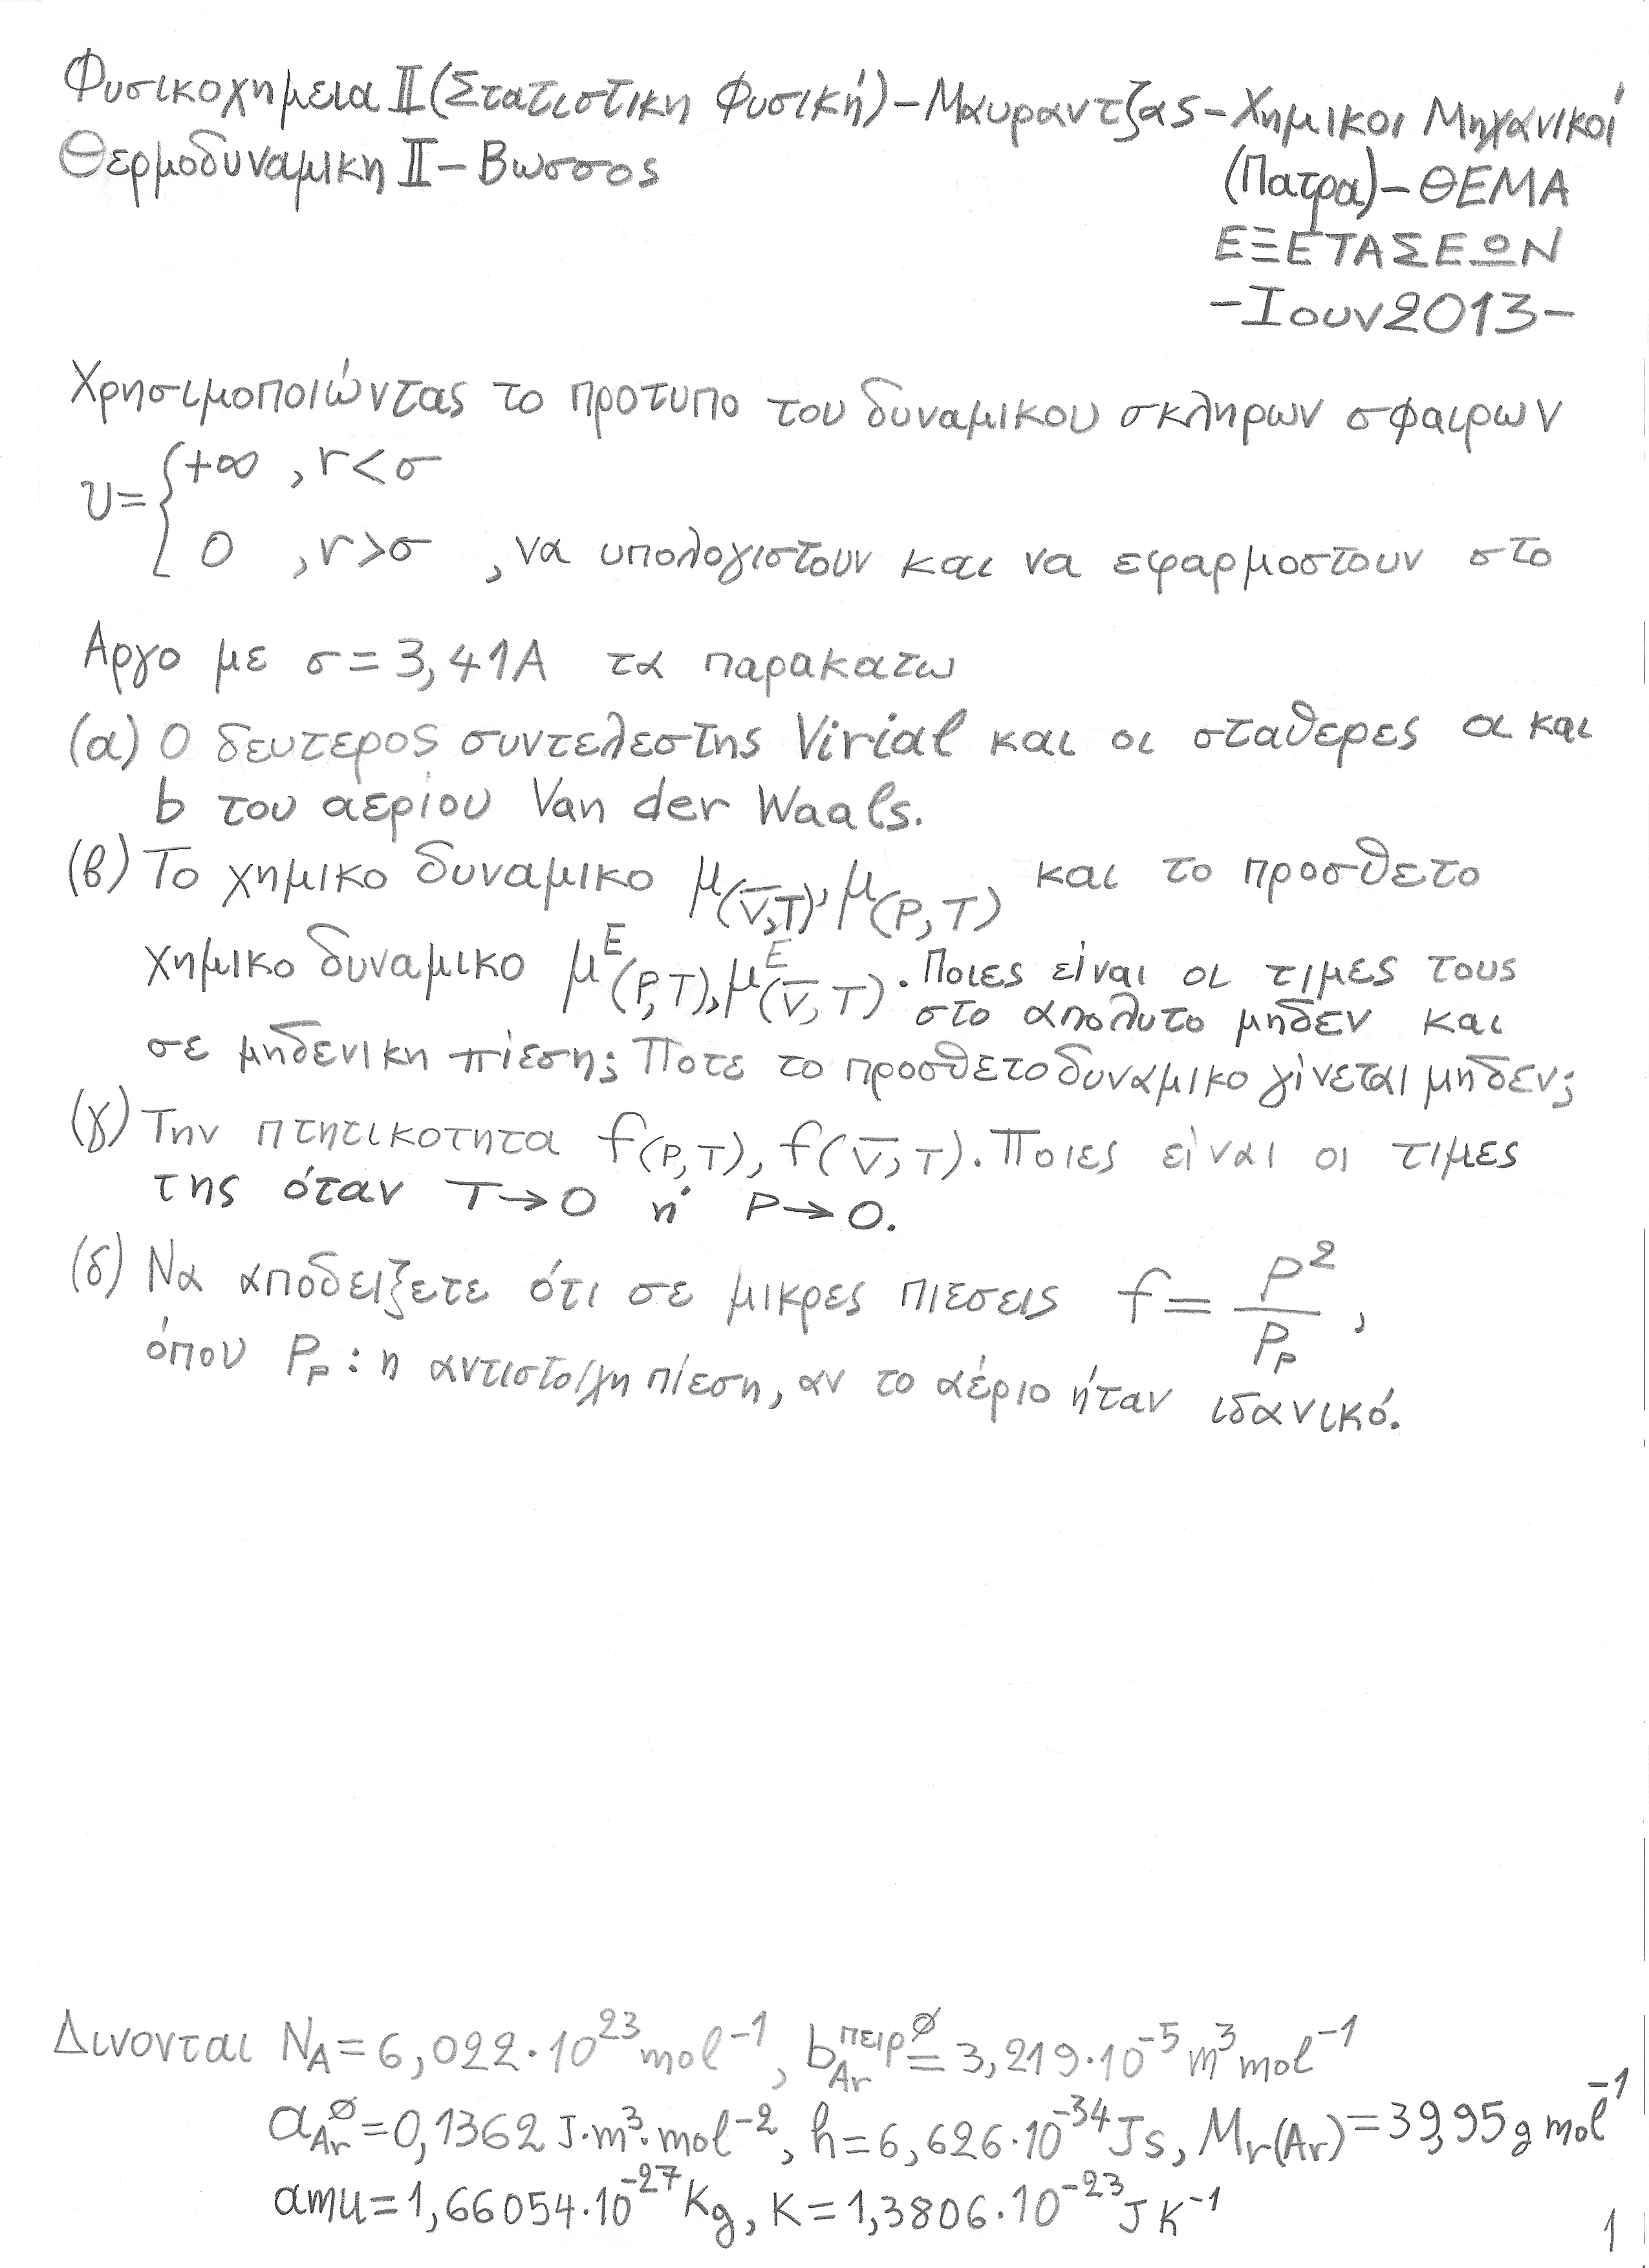 Φυσικοχημεια II (Στατιστικη Φυσική) – Μαυραντζας – Χημικοι Μηχανικοί
Θερμοδυναμικη II – Βωσσος
(Πατρα) – ΘΕΜΑ
ΕΞΕΤΑΣΕΩΝ
– Ιουν 2013 –
Χρησιμοποιώντας το προτυπο του δυναμικου σκληρων σφαιρων
υ = { +∞ , r < σ
0 , r > σ , να υπολογιστουν και να εφαρμοστουν στο
Αργο με σ = 3,41Α τα παρακατω
(α) Ο δευτερος συντελεστης Virial και οι σταθερες α και
b του αερίου Van der Waals.
(β) Το χημικο δυναμικο μ(V̅,T), μ(P,T) και το προσθετο
χημικο δυναμικο μᴱ(P,T), μᴱ(V̅,T). Ποιες είναι οι τιμες τους
στο απολυτο μηδεν και
σε μηδενικη πίεση; Ποτε το προσθετο δυναμικο γίνεται μηδεν;
(γ) Την πτητικοτητα f(P,T), f(V̅,T). Ποιες είναι οι τιμες
της όταν T→0 ή P→0.
(δ) Να αποδειξετε ότι σε μικρες πιεσεις f = P²/P_P ,
όπου P_P : η αντιστοίχη πίεση, αν το αέριο ήταν ιδανικό.
Δινονται N_A = 6,022·10²³ mol⁻¹, b_Ar^πειρ∅ = 3,219·10⁻⁵ m³ mol⁻¹
α_Ar^∅ = 0,1362 J·m³·mol⁻², h = 6,626·10⁻³⁴ Js, Mr(Ar) = 39,95 g mol⁻¹
amu = 1,66054·10⁻²⁷ Kg, K = 1,3806·10⁻²³ J K⁻¹
1